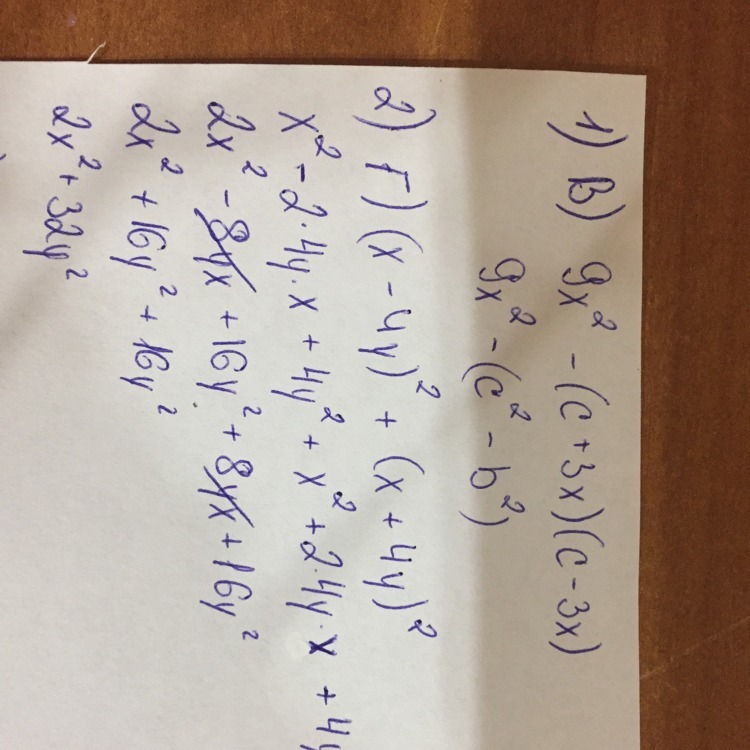 1) В) 9x² - (c+3x)(c-3x)
9x² - (c² - b²)
2) Г) (x - 4y)² + (x + 4y)²
x² - 2·4y·x + 4y² + x² + 2·4y·x + 4y
2x² - 8yx + 16y² + 8yx + 16y²
2x² + 16y² + 16y²
2x² + 32y²